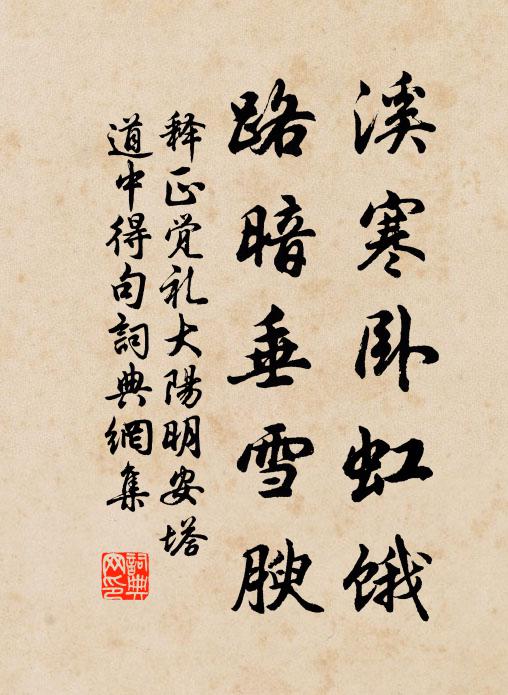 溪寒卧虹饿
路暗垂雪腴
释正觉礼大阳明安塔
道中得句詞典網集
詞典
网印